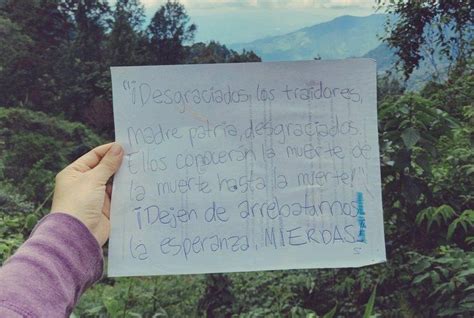 "¡Desgraciados los traidores,
madre patria, desgraciados.
Ellos conocerán la muerte de
la muerte hasta la muerte!"
¡Dejen de arrebatarnos
la esperanza, MIERDAS!